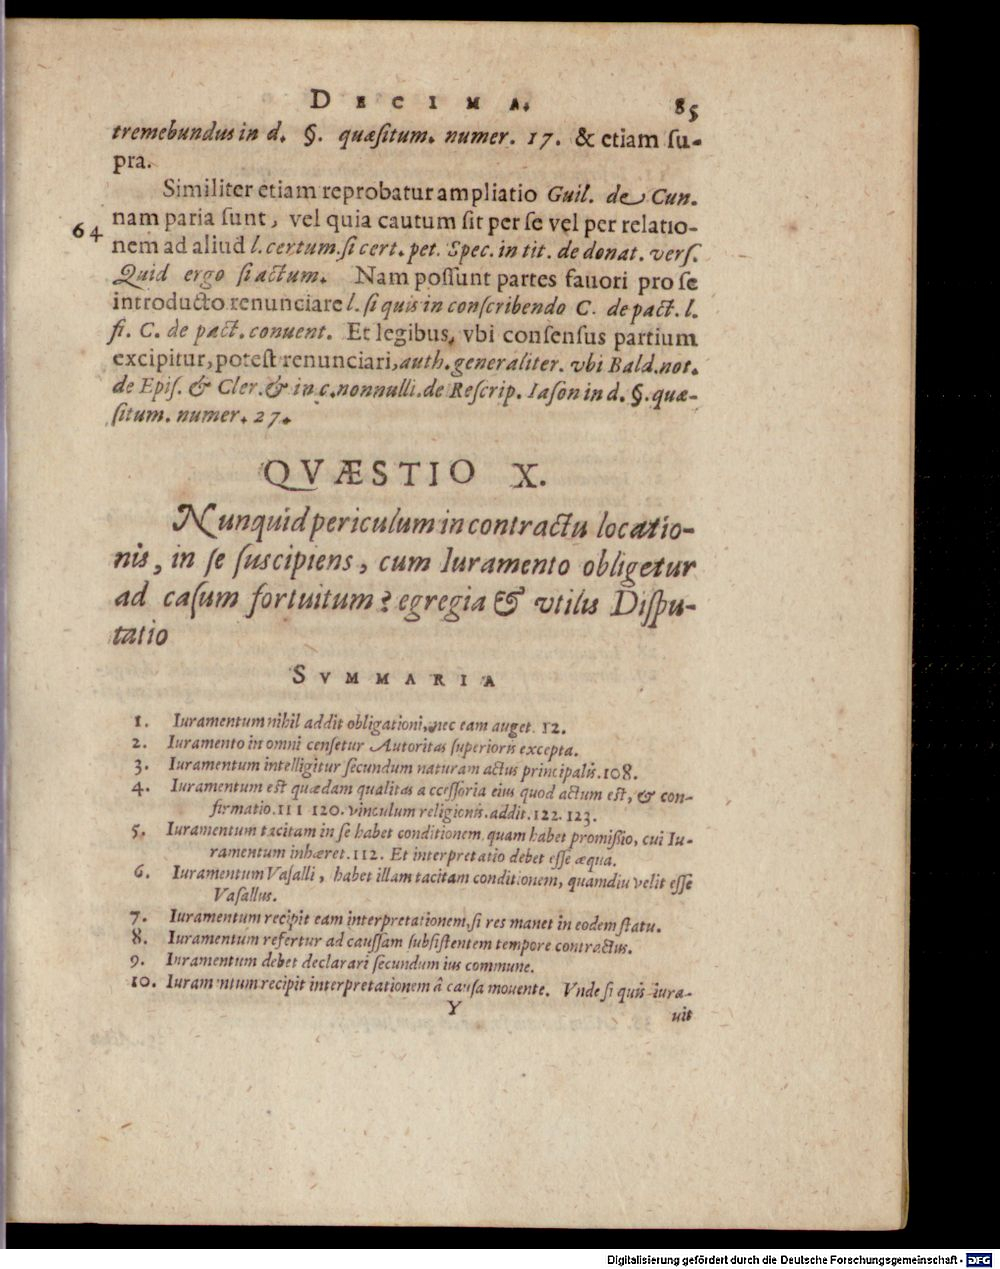 DECIMA. 85
tremebundus in d. §. quæſitum. numer. 17. & etiam ſu-
pra.
Similiter etiam reprobatur ampliatio Guil. de Cun.
64 nam paria ſunt, vel quia cautum ſit per ſe vel per relatio-
nem ad aliud l. certum. ſi cert. pet. Spec. in tit. de donat. verſ.
Quid ergo ſi actum. Nam poſſunt partes fauori pro ſe
introducto renunciare l. ſi quis in conſcribendo C. de pact. l.
fi. C. de pact. conuent. Et legibus, vbi conſenſus partium
excipitur, poteſt renunciari, auth. generaliter. vbi Bald. not.
de Epiſ. & Cler. & in c. nonnulli. de Reſcrip. Iaſon in d. §. quæ-
ſitum. numer. 27.
QVÆSTIO X.
Nunquid periculum in contractu locatio-
nis, in ſe ſuscipiens, cum Iuramento obligetur
ad caſum fortuitum? egregia & vtilis Diſpu-
tatio
SVMMARIA
1. Iuramentum nihil addit obligationi, nec eam auget. 12.
2. Iuramento in omni cenſetur Autoritas ſuperioris excepta.
3. Iuramentum intelligitur ſecundum naturam actus principalis. 108.
4. Iuramentum eſt quædam qualitas acceſſoria eius quod actum eſt, & con-
firmatio. 111 120. vinculum religionis. addit. 122. 123.
5. Iuramentum tacitam in ſe habet conditionem, quam habet promiſſio, cui Iu-
ramentum inhæret. 112. Et interpretatio debet eſſe æqua.
6. Iuramentum Vaſalli, habet illam tacitam conditionem, quamdiu velit eſſe
Vaſallus.
7. Iuramentum recipit eam interpretationem, ſi res manet in eodem ſtatu.
8. Iuramentum refertur ad cauſſam ſubſiſtentem tempore contractus.
9. Iuramentum debet declarari ſecundum ius commune.
10. Iuramentum recipit interpretationem â cauſa mouente. Vnde ſi quis iura-
Y uit
Digitalisierung gefördert durch die Deutsche Forschungsgemeinschaft - DFG